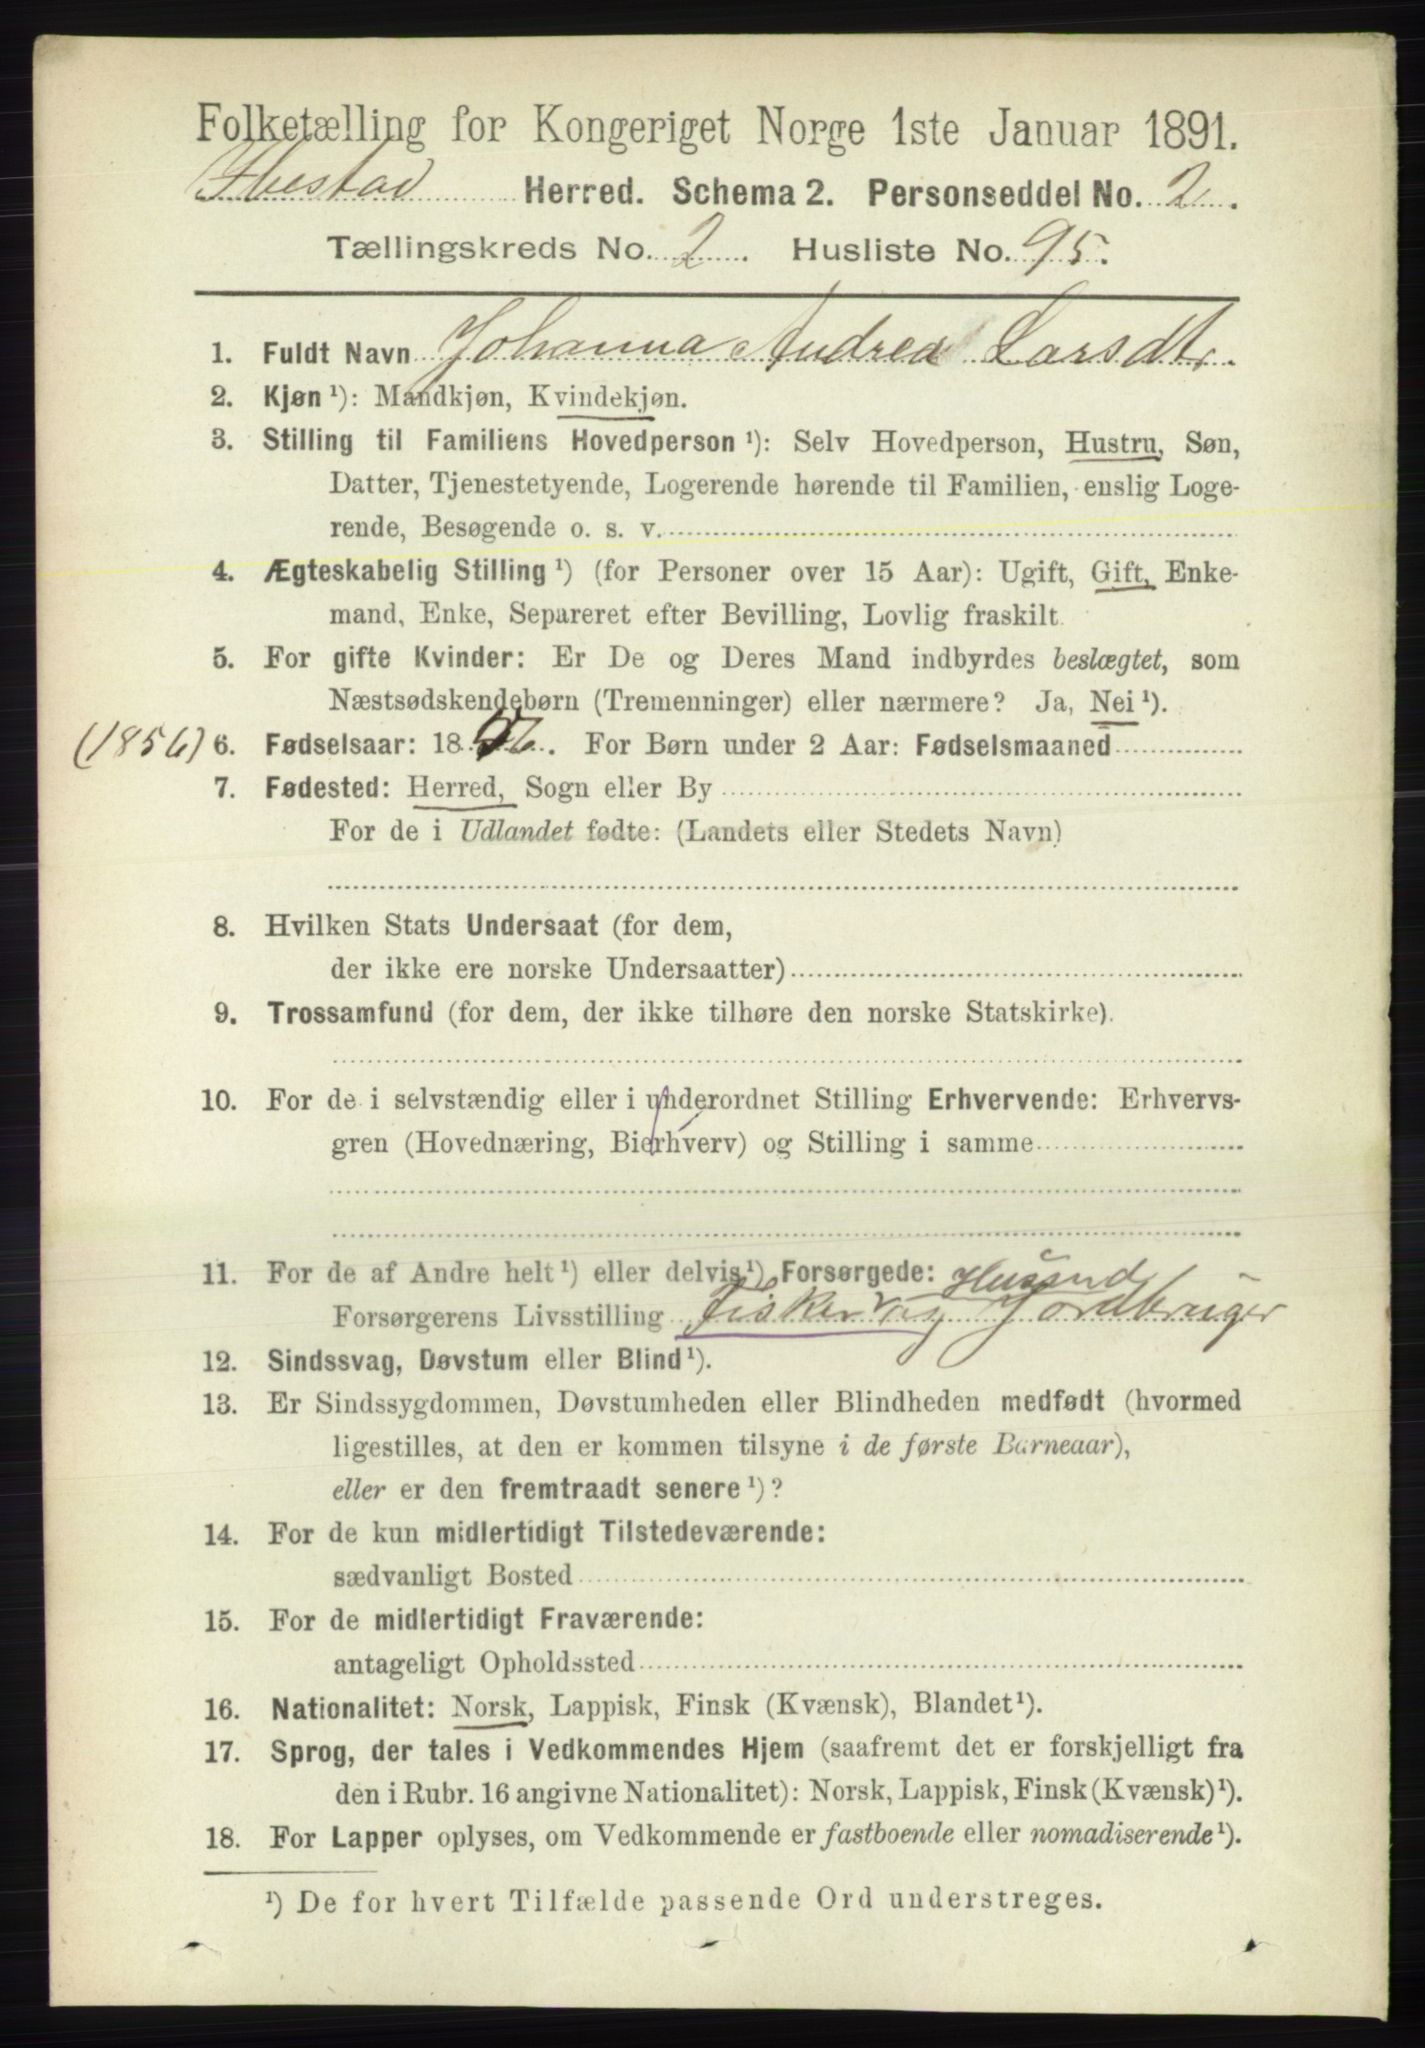 Folketælling for Kongeriget Norge 1ste Januar 1891.
Ibestad Herred. Schema 2. Personseddel No. 2.
Tællingskreds No. 2. Husliste No. 95.
1. Fuldt Navn Johanna Andrea Larsdtr.
2. Kjøn ¹): Mandkjøn, Kvindekjøn.
3. Stilling til Familiens Hovedperson ¹): Selv Hovedperson, Hustru, Søn,
Datter, Tjenestetyende, Logerende hørende til Familien, enslig Loge-
rende, Besøgende o. s. v.
4. Ægteskabelig Stilling ¹) (for Personer over 15 Aar): Ugift, Gift, Enke-
mand, Enke, Separeret efter Bevilling, Lovlig fraskilt.
5. For gifte Kvinder: Er De og Deres Mand indbyrdes beslægtet, som
Næstsødskendebørn (Tremenninger) eller nærmere? Ja, Nei ¹).
(1856) 6. Fødselsaar: 1856. For Børn under 2 Aar: Fødselsmaaned
7. Fødested: Herred, Sogn eller By
For de i Udlandet fødte: (Landets eller Stedets Navn)
8. Hvilken Stats Undersaat (for dem,
der ikke ere norske Undersaatter)
9. Trossamfund (for dem, der ikke tilhøre den norske Statskirke).
10. For de i selvstændig eller i underordnet Stilling Erhvervende: Erhvervs-
gren (Hovednæring, Bierhverv) og Stilling i samme
11. For de af Andre helt ¹) eller delvis ¹) Forsørgede: Husmd
Forsørgerens Livsstilling Fisker og Jordbruger
12. Sindssvag, Døvstum eller Blind ¹).
13. Er Sindssygdommen, Døvstumheden eller Blindheden medfødt (hvormed
ligestilles, at den er kommen tilsyne i de første Barneaar),
eller er den fremtraadt senere ¹)?
14. For de kun midlertidigt Tilstedeværende:
sædvanligt Bosted
15. For de midlertidigt Fraværende:
antageligt Opholdssted
16. Nationalitet: Norsk, Lappisk, Finsk (Kvænsk), Blandet ¹).
17. Sprog, der tales i Vedkommendes Hjem (saafremt det er forskjelligt fra
den i Rubr. 16 angivne Nationalitet): Norsk, Lappisk, Finsk (Kvænsk) ¹).
18. For Lapper oplyses, om Vedkommende er fastboende eller nomadiserende ¹).
¹) De for hvert Tilfælde passende Ord understreges.